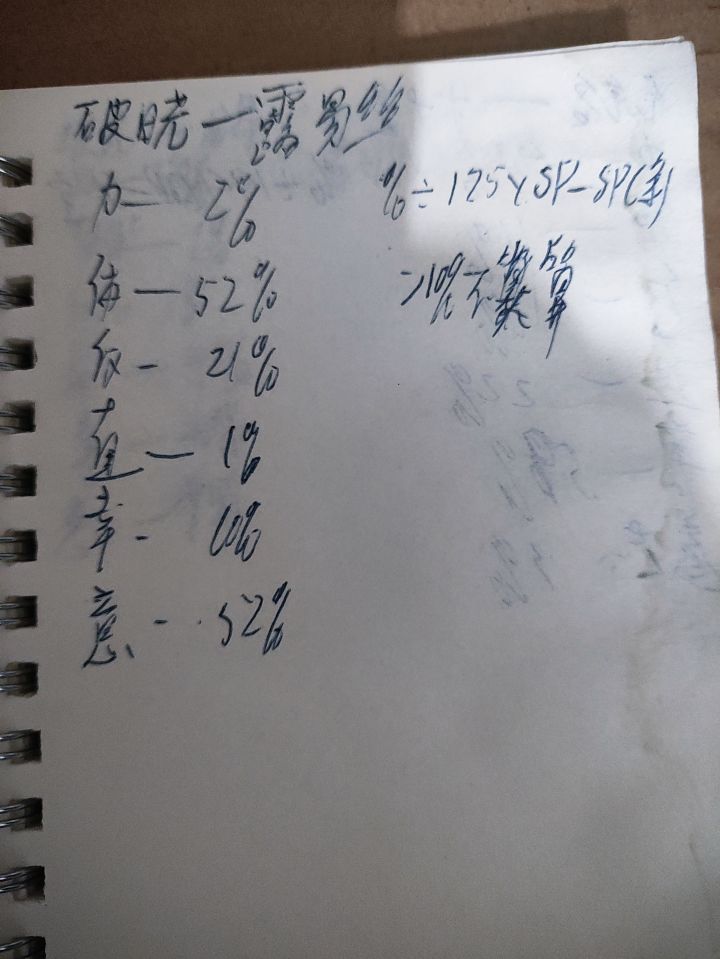 破晓一露易丝
力— 2%
% ÷ 175 × SP — SP(余)
体— 52%
>10%不冀算
反- 21%
直— 1%
幸- 10%
意-. 52%